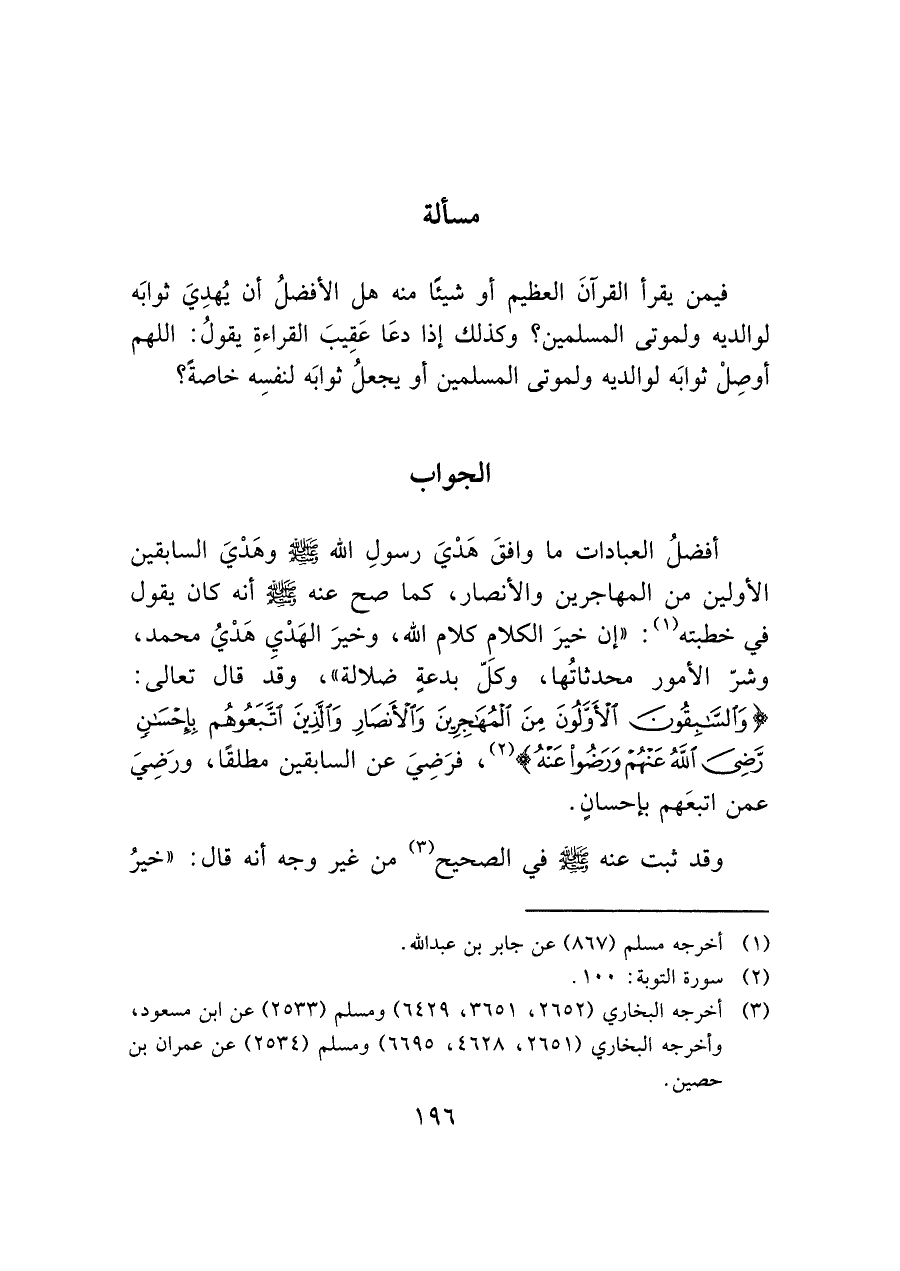 مسألة
فيمن يقرأ القرآنَ العظيم أو شيئًا منه هل الأفضلُ أن يُهدِيَ ثوابَه
لوالديه ولموتى المسلمين؟ وكذلك إذا دعَا عَقِيبَ القراءةِ يقولُ: اللهم
أوصِلْ ثوابَه لوالديه ولموتى المسلمين أو يجعلُ ثوابَه لنفسِه خاصةً؟
الجواب
أفضلُ العبادات ما وافقَ هَدْيَ رسولِ الله ﷺ وهَدْيَ السابقين
الأولين من المهاجرين والأنصار، كما صح عنه ﷺ أنه كان يقول
في خطبته(١): «إن خيرَ الكلامِ كلام الله، وخيرَ الهَدْيِ هَدْيُ محمد،
وشرّ الأمور محدثاتُها، وكلّ بدعةٍ ضلالة»، وقد قال تعالى:
﴿وَٱلسَّٰبِقُونَ ٱلْأَوَّلُونَ مِنَ ٱلْمُهَٰجِرِينَ وَٱلْأَنصَارِ وَٱلَّذِينَ ٱتَّبَعُوهُم بِإِحْسَٰنٍ
رَّضِيَ ٱللَّهُ عَنْهُمْ وَرَضُوا۟ عَنْهُ﴾(٢)، فرَضِيَ عن السابقين مطلقًا، ورضِيَ
عمن اتبعَهم بإحسانٍ.
وقد ثبت عنه ﷺ في الصحيح(٣) من غير وجه أنه قال: «خيرُ
(١) أخرجه مسلم (٨٦٧) عن جابر بن عبدالله.
(٢) سورة التوبة: ١٠٠.
(٣) أخرجه البخاري (٢٦٥٢، ٣٦٥١، ٦٤٢٩) ومسلم (٢٥٣٣) عن ابن مسعود،
وأخرجه البخاري (٢٦٥١، ٤٦٢٨، ٦٦٩٥) ومسلم (٢٥٣٤) عن عمران بن
حصين.
١٩٦